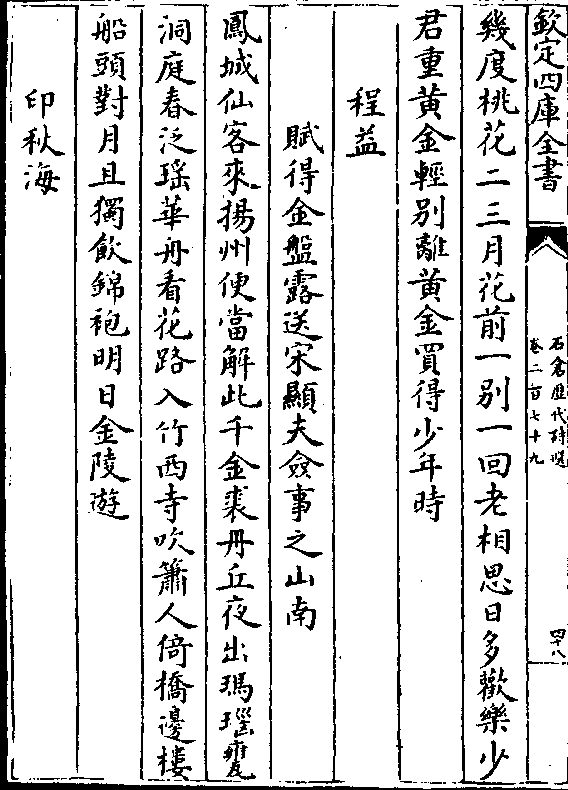 欽定四庫全書
石倉歷代詩選
卷二百七十九
四十八
幾度桃花二三月花前一别一回老相思日多歡樂少
君重黄金輕别離黄金買得少年時
程益
賦得金盤露送宋顯夫僉事之山南
鳳城仙客來揚州便當解此千金裘丹丘夜出瑪瑙甕
洞庭春泛瑶華舟看花路入竹西寺吹簫人倚橋邊樓
船頭對月且獨飲錦袍明日金陵遊
印秋海